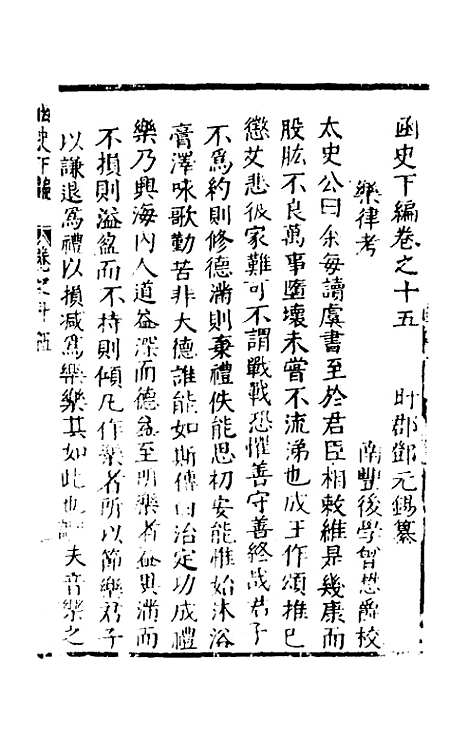 函史下編卷之十五
旴郡鄧元錫纂
南豐後學曾懋爵校
樂律考
太史公曰余每讀虞書至於君臣相敕維是幾康而
股肱不良萬事墮壞未嘗不流涕也成王作頌推巳
懲艾悲彼家難可不謂戰戰恐懼善守善終哉君子
不爲約則修德滿則棄禮佚能思初安能惟始沐浴
膏澤咏歌勤苦非大德誰能如斯傳曰治定功成禮
樂乃興海內人道益深而德益至所樂者益異滿而
不損則溢盈而不持則傾凡作樂者所以節樂君子
以謙退爲禮以損减爲樂樂其如此也 夫音樂之
函史下編
卷之十五